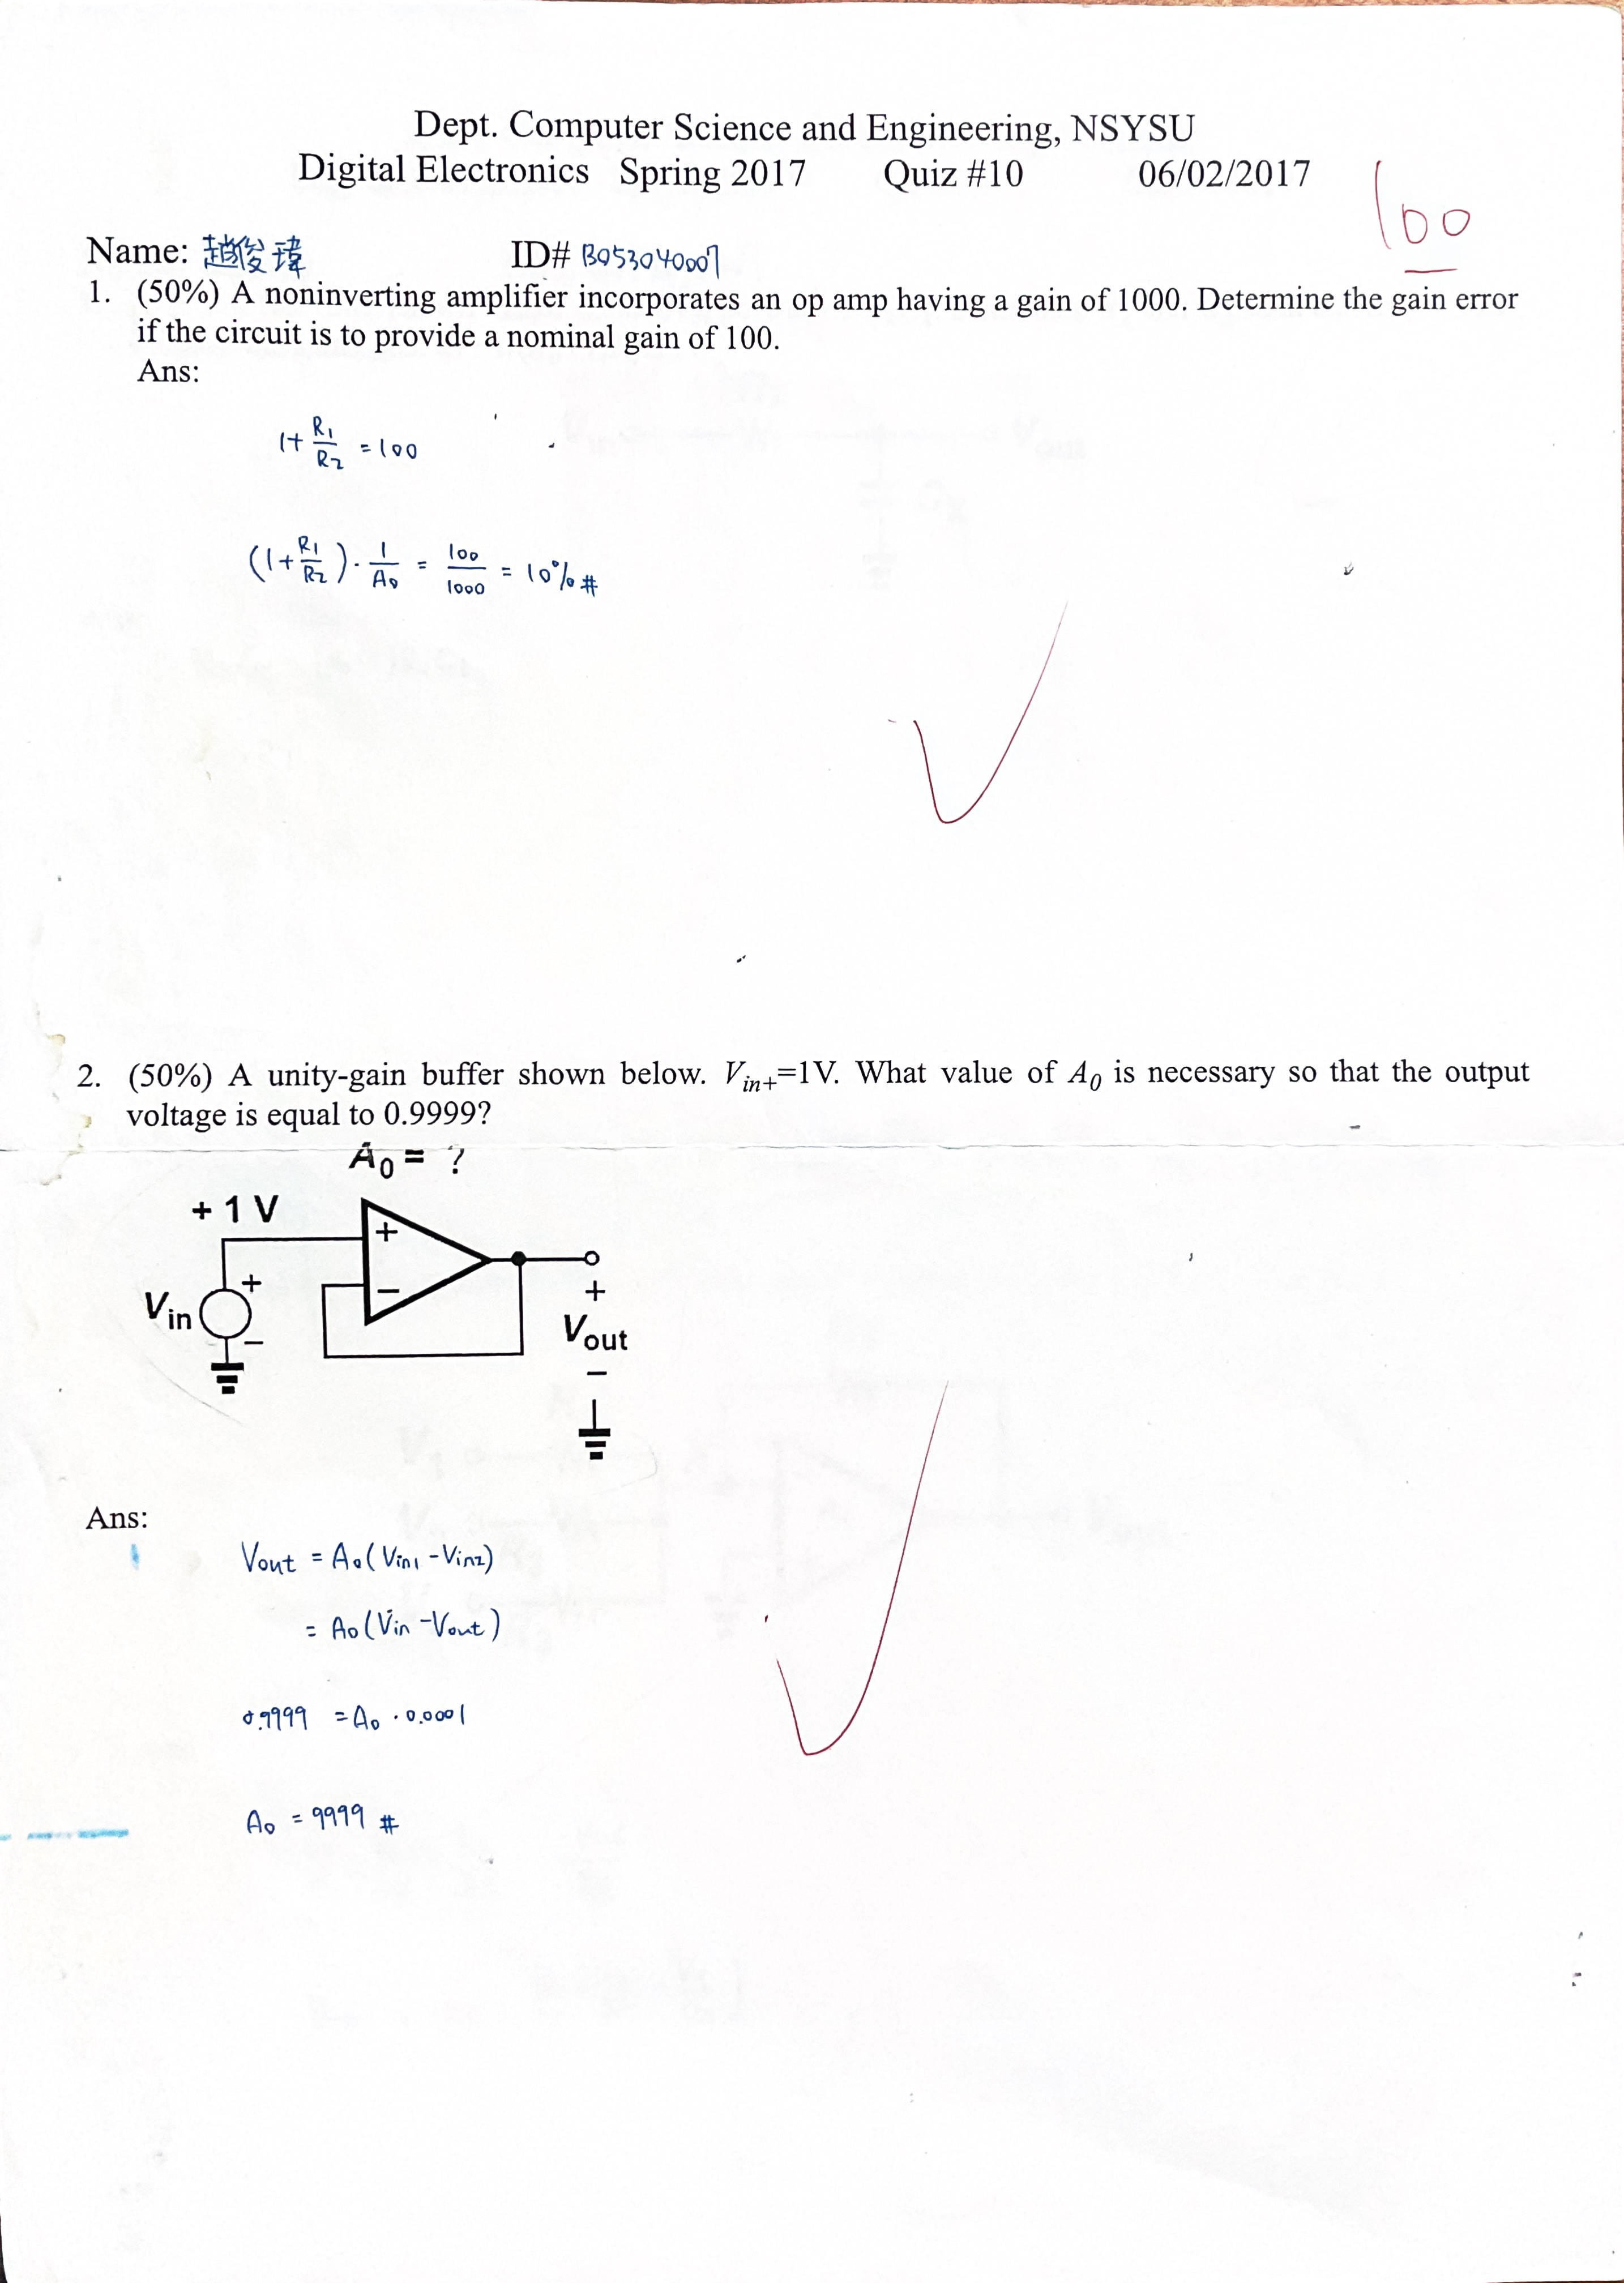 Dept. Computer Science and Engineering, NSYSU
Digital Electronics Spring 2017 Quiz #10 06/02/2017
100
Name: 趙俊瑋 ID# B053040007
1. (50%) A noninverting amplifier incorporates an op amp having a gain of 1000. Determine the gain error
if the circuit is to provide a nominal gain of 100.
Ans:
1+ R1/R2 = 100
(1+ R1/R2) · 1/A0 = 100/1000 = 10% #
2. (50%) A unity-gain buffer shown below. Vin+=1V. What value of A0 is necessary so that the output
voltage is equal to 0.9999?
A0 = ?
+ 1 V
+
+
−
Vin
−
+
Vout
−
Ans:
Vout = A0(Vin1 - Vin2)
= A0(Vin - Vout)
0.9999 = A0 · 0.0001
A0 = 9999 #